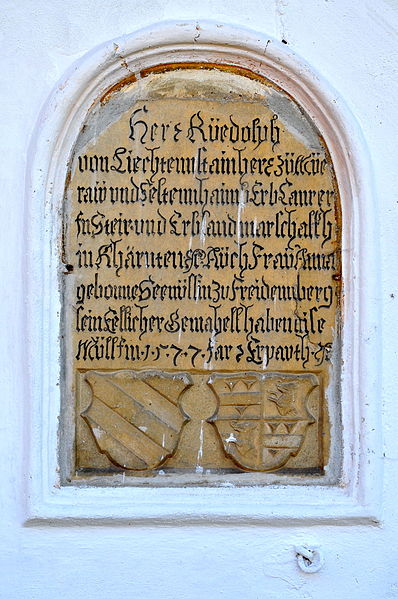 Herr Rüedolph
von Liechtennstain herr zu Mue
raw und Veltennhaimb Erb Camrer
In Steir und Erblandmarschalkh
in Khärnten ꝛc Auch Fraw Anna
geborne Seenüssin zu Freidennberg
sein Eelicher Gemahell haben dise
Müll im 1577 Jar Erpauth